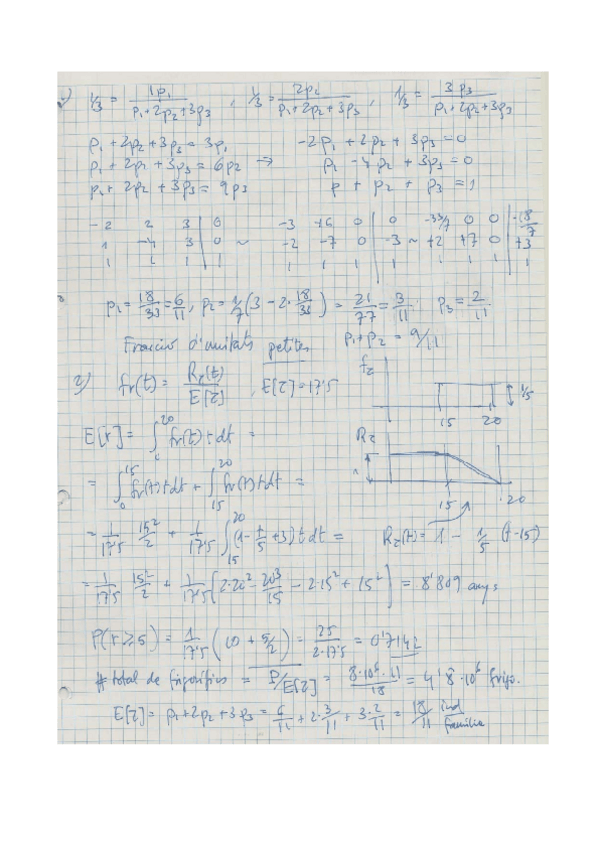 1/3 = 1p₁/(p₁+2p₂+3p₃) , 1/3 = 2p₂/(p₁+2p₂+3p₃) , 1/3 = 3p₃/(p₁+2p₂+3p₃)
p₁ + 2p₂ + 3p₃ = 3p₁ -2p₁ + 2p₂ + 3p₃ = 0
p₁ + 2p₂ + 3p₃ = 6p₂ → p₁ - 4p₂ + 3p₃ = 0
p₁ + 2p₂ + 3p₃ = 9p₃ p + p₂ + p₃ = 1
-2 2 3 | 0 -3 +6 0 | 0 -33/7 0 0 | -18/7
1 -4 3 | 0 ~ -2 -7 0 | -3 ~ +2 +7 0 | +3
1 1 1 | 1 1 1 1 | 1 1 1 1 | 1
p₁ = 18/33 = 6/11, p₂ = 1/7 (3 - 2·18/33) = 21/77 = 3/11 p₃ = 2/11
Fracció d'unitats petites p₁+p₂ = 9/11
2) fr(t) = Rz(t)/E[Z] , E[Z] = 17'5
fz
1/5
15 20
E[r] = ∫₀²⁰ fr(t) t dt =
Rz
1
15 20
= ∫₀¹⁵ fr(t) t dt + ∫₁₅²⁰ fr(t) t dt =
= 1/17'5 15²/2 + 1/17'5 ∫₁₅²⁰ (1 - t/5 + 3) t dt = Rz(t) = 1 - 1/5 (t-15)
= 1/17'5 15²/2 + 1/17'5 [2·20² - 20³/15 - 2·15² + 15²] = 8'809 anys
P(r≥5) = 1/17'5 (10 + 5/2) = 25/2·17'5 = 0'7142
# total de frigorífics = P/E[Z] = 8·10⁶·11/18 = 4'8·10⁶ frigo.
E[Z] = p₁+2p₂+3p₃ = 6/11 + 2·3/11 + 3·2/11 = 18/11 ind/familia